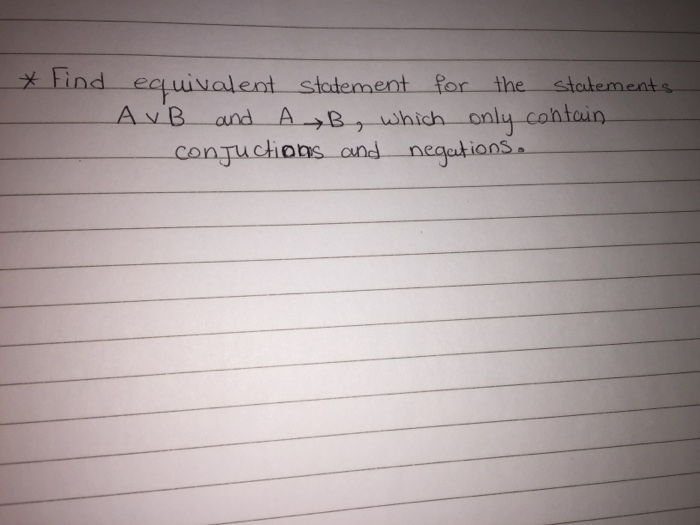 * Find equivalent statement for the statements
A ∨ B and A → B, which only contain
conjuctions and negations.